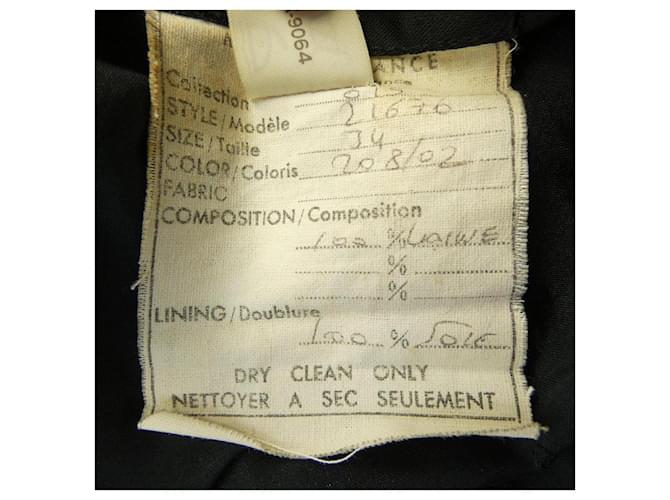 9064
ANCE
Collection
STYLE/Modèle 21676
SIZE/Taille 34
COLOR/Coloris 208/02
FABRIC
COMPOSITION/Composition
100 % LAINE
%
%
LINING/Doublure
100 % SOIE
DRY CLEAN ONLY
NETTOYER A SEC SEULEMENT